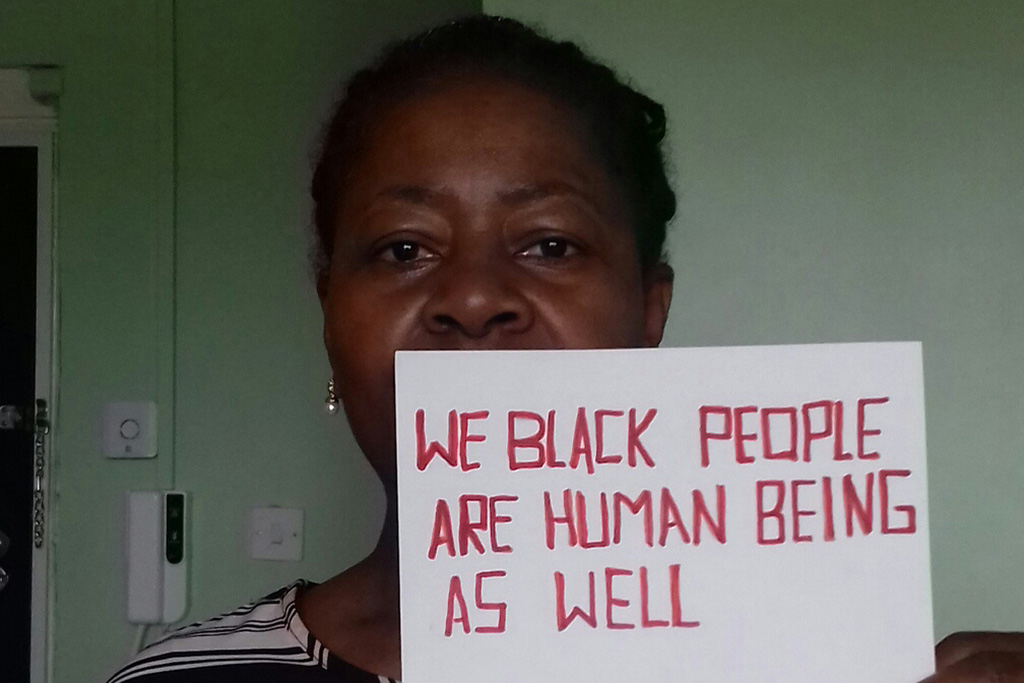 WE BLACK PEOPLE
ARE HUMAN BEING
AS WELL